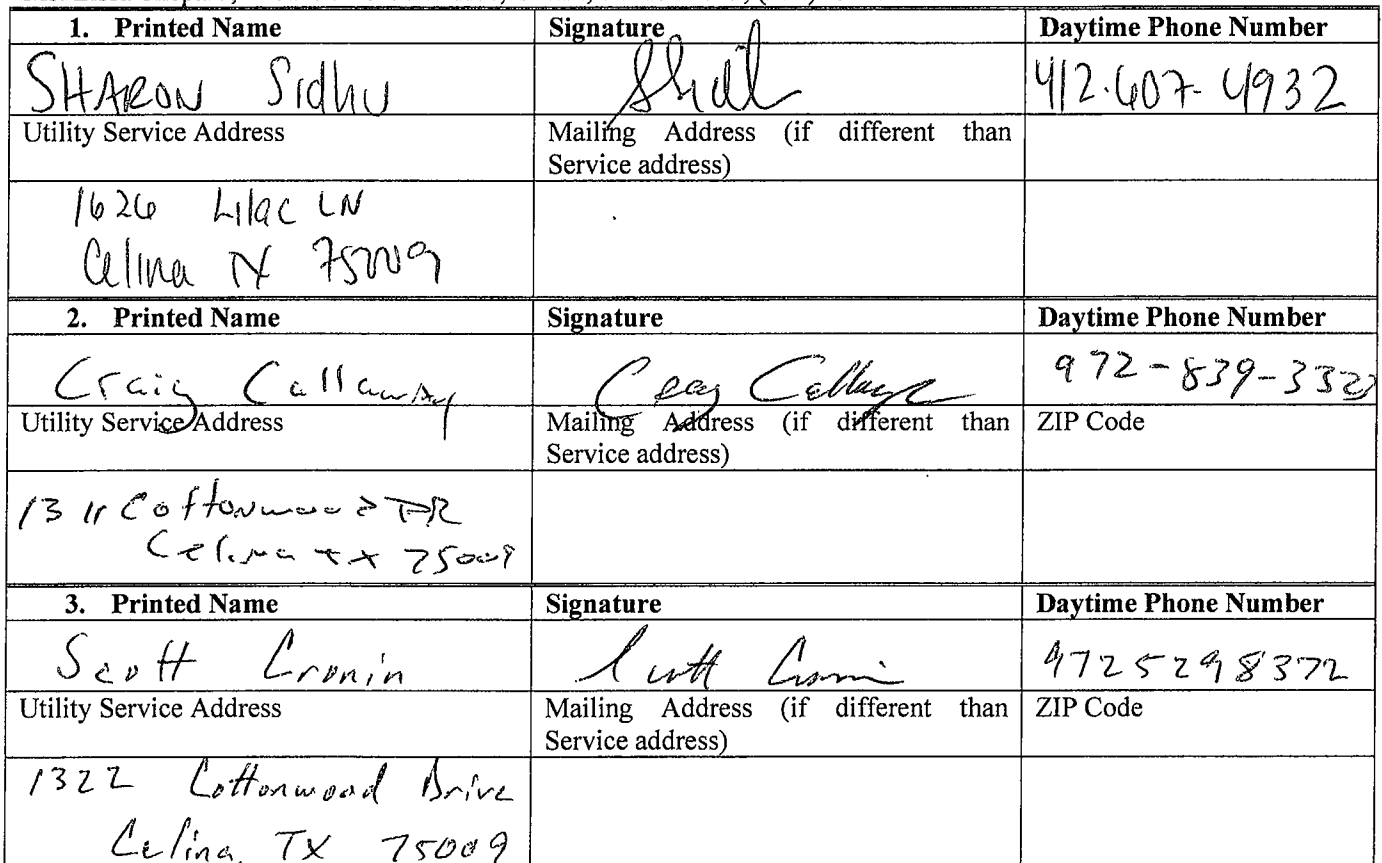 1. Printed Name Signature Daytime Phone Number
SHARON Sidhu 412.607-4932
Utility Service Address Mailing Address (if different than
Service address)
1626 Lilac LN
Celina TX 75009
2. Printed Name Signature Daytime Phone Number
Craig Callaway 972-839-332
Utility Service Address Mailing Address (if different than ZIP Code
Service address)
1311 Cottonwood DR
Celina TX 75009
3. Printed Name Signature Daytime Phone Number
Scott Cronin Scott Cronin 9725298372
Utility Service Address Mailing Address (if different than ZIP Code
Service address)
1322 Cottonwood Drive
Celina, TX 75009